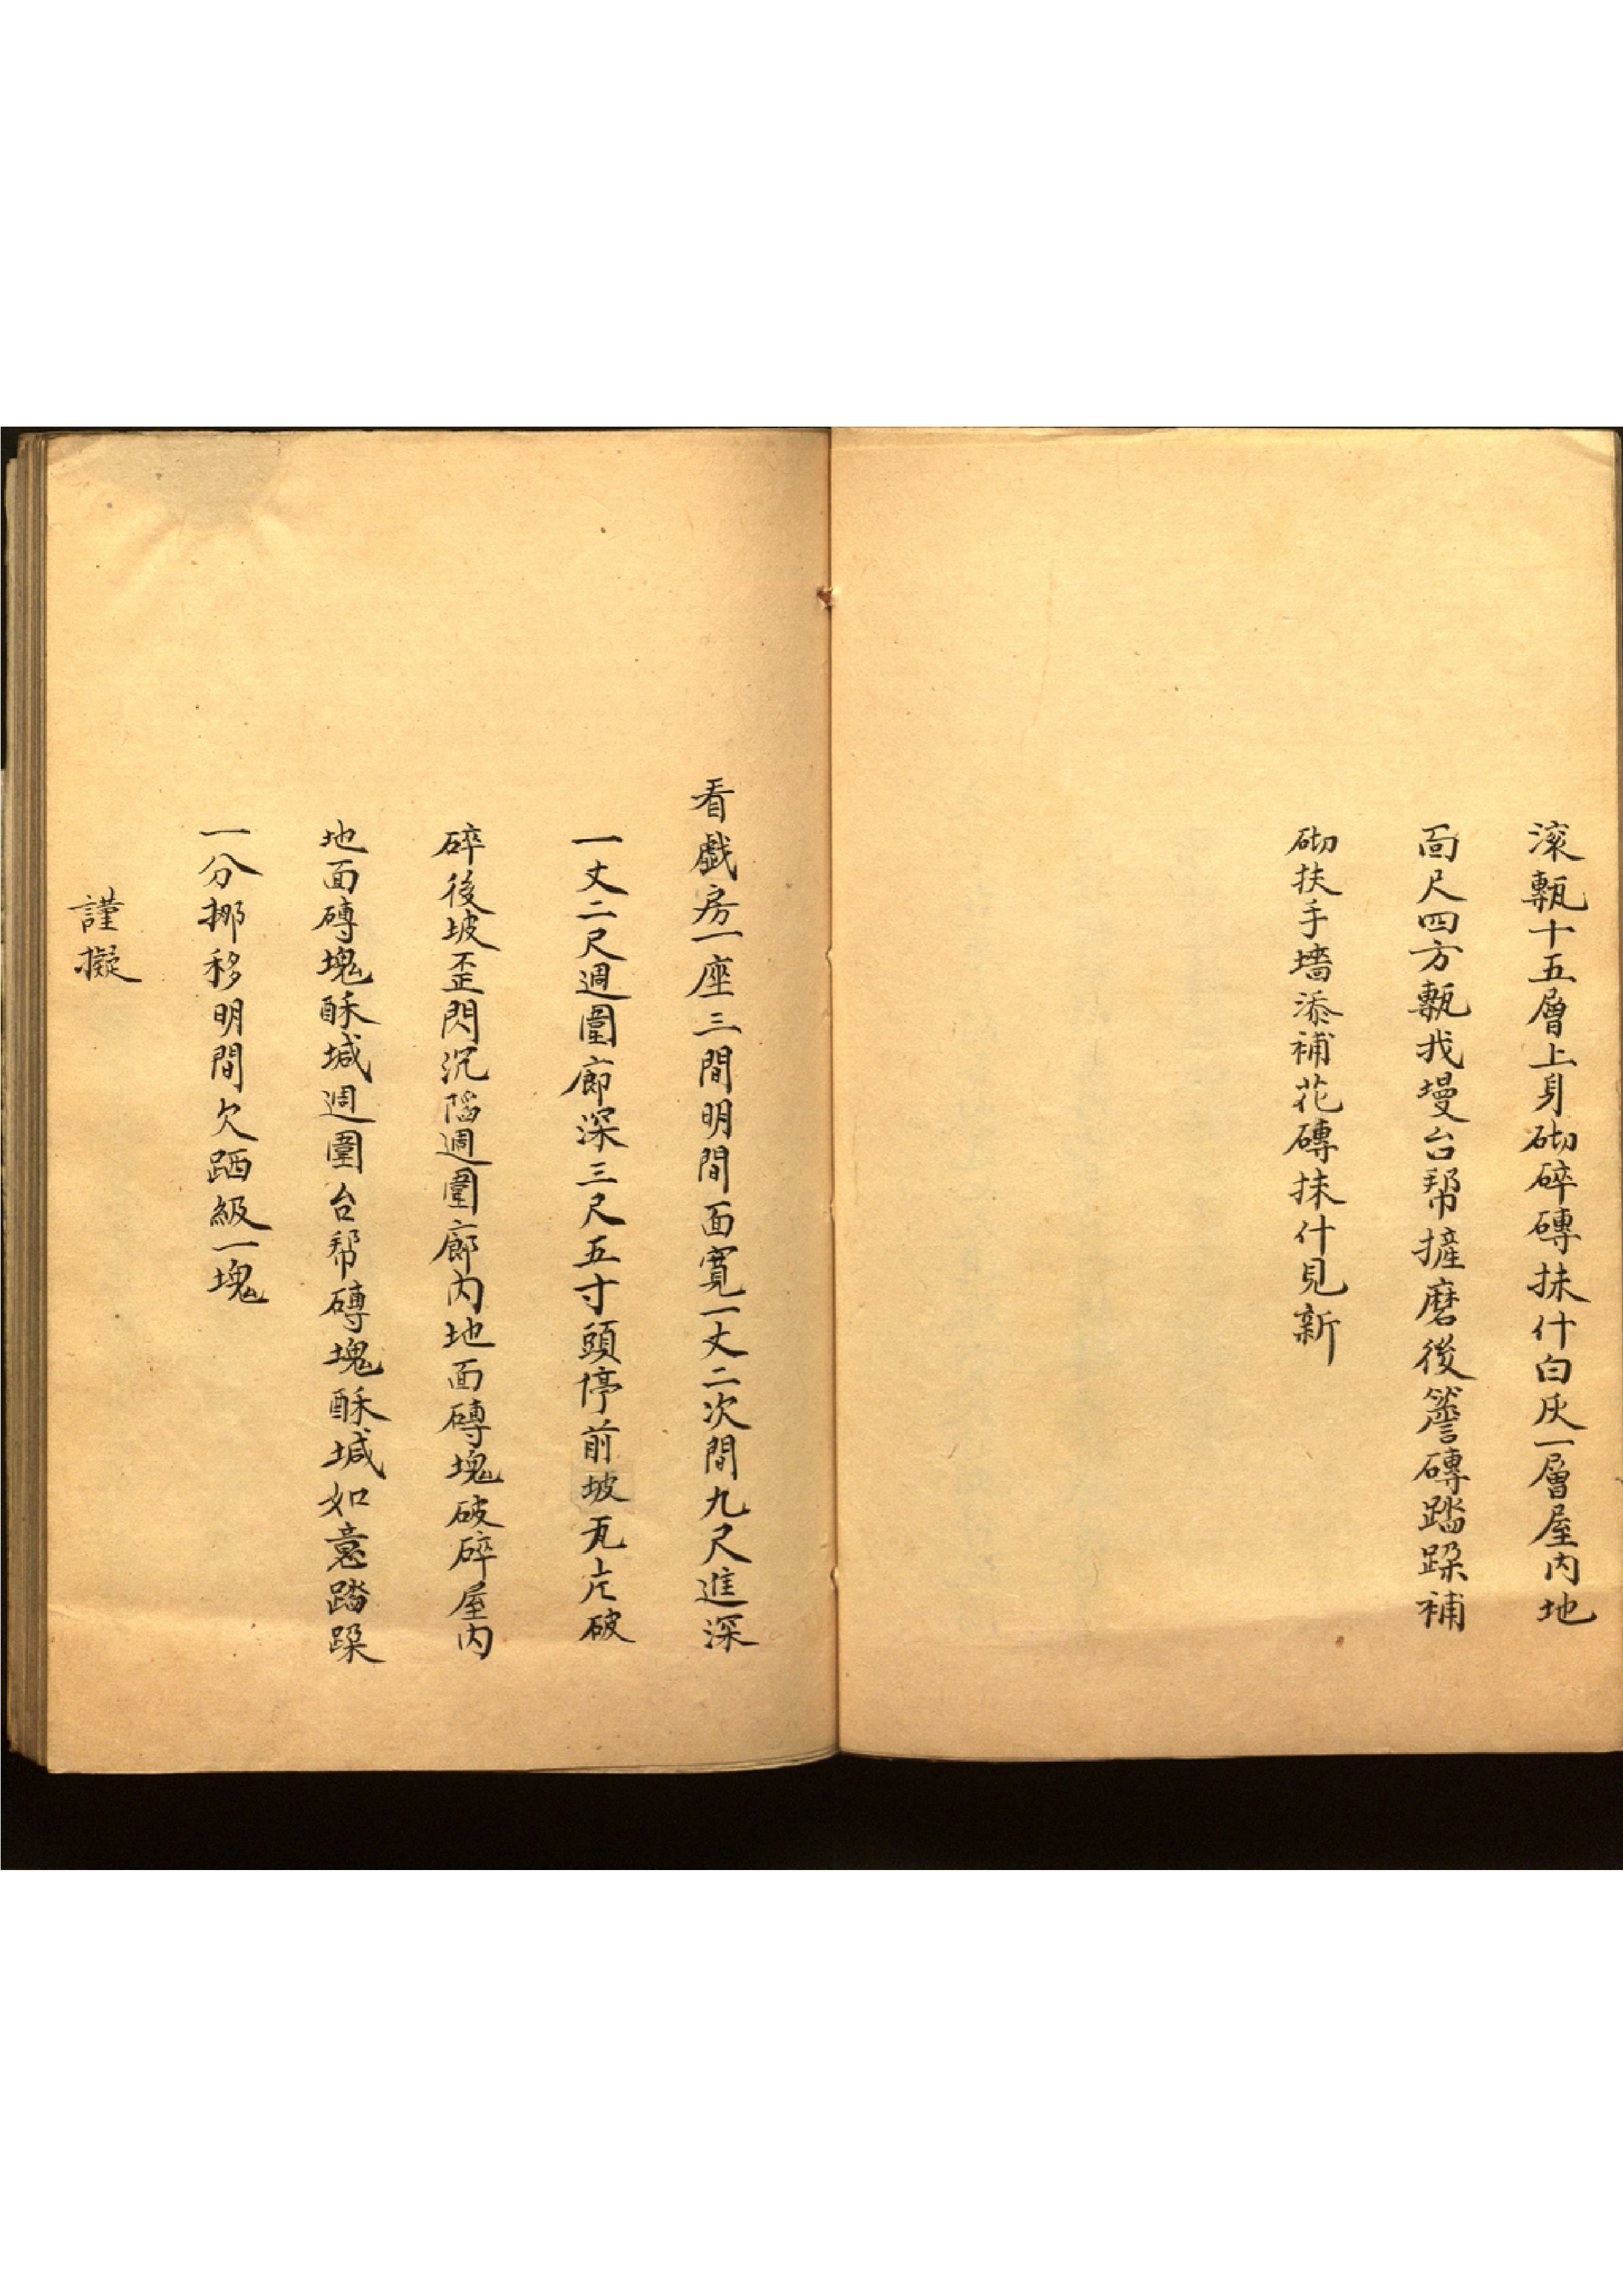 滚甎十五層上身砌碎磚抹什白灰一層屋内地
面尺四方甎找墁台帮搟磨後簷磚踏跺補
砌扶手墻添補花磚抹什見新
看戲房一座三間明間面寬一丈二次間九尺進深
一丈二尺週圍廊深三尺五寸頭停前坡瓦片破
碎後坡歪閃沉陷週圍廊内地面磚塊破碎屋内
地面磚塊酥堿週圍台帮磚塊酥堿如意踏跺
一分挪移明間欠跴級一塊
謹擬